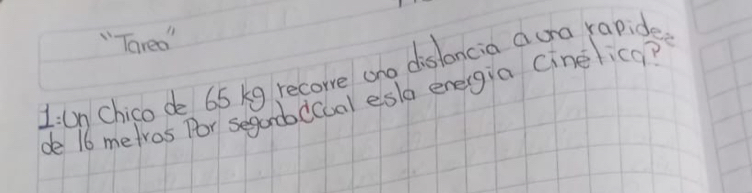 "Tarea"
1: Un chico de 65 kg recorre una distancia a una rapidez
de 16 metros Por segundo ¿Cual es la energia cinética?